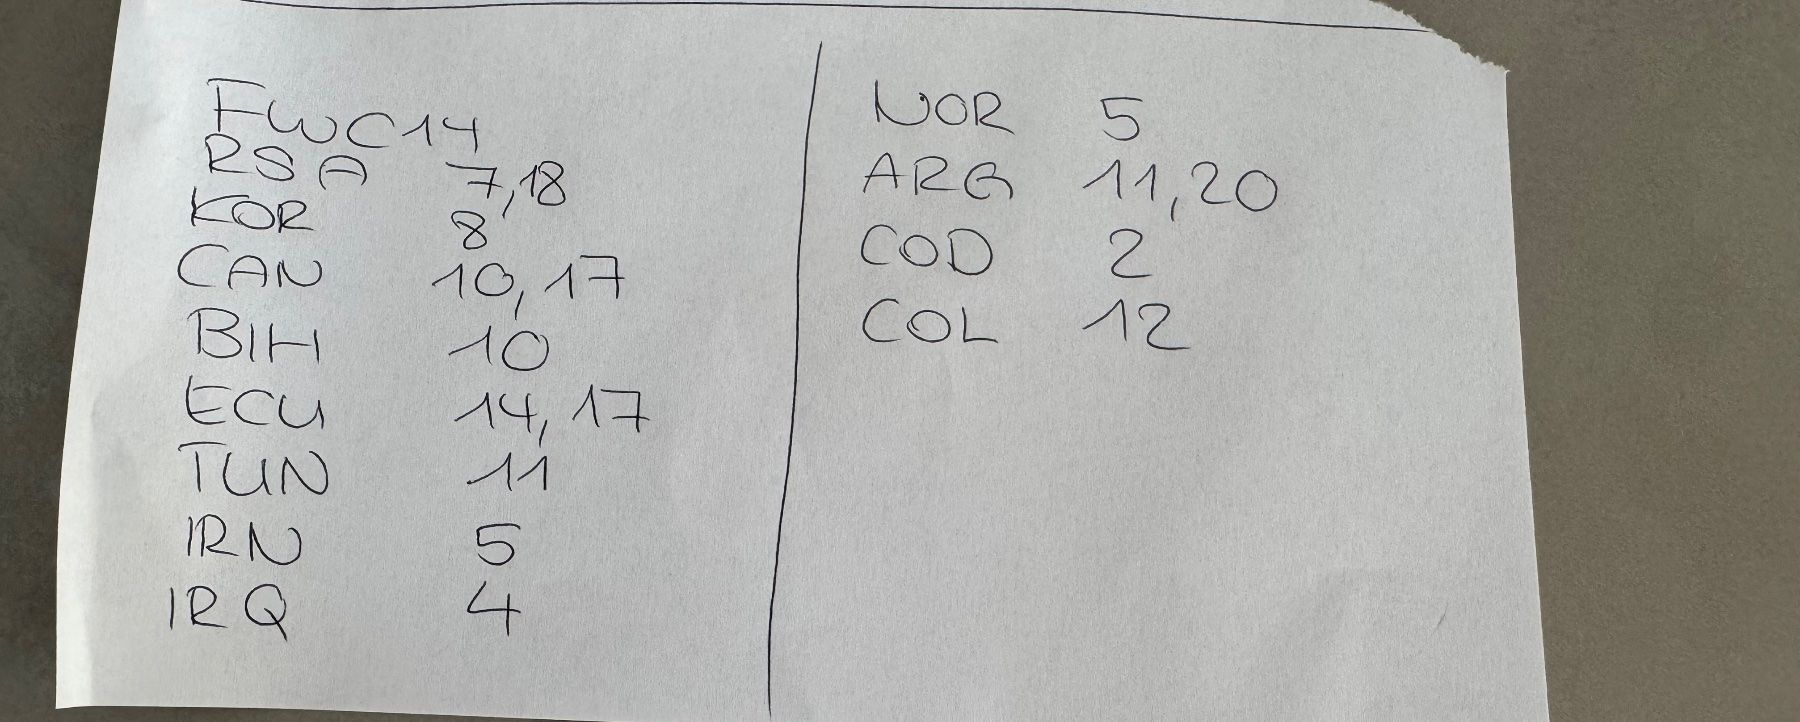 FWC14
RSA 7,18
KOR 8
CAN 10,17
BIH 10
ECU 14,17
TUN 11
IRN 5
IRQ 4
NOR 5
ARG 11,20
COD 2
COL 12